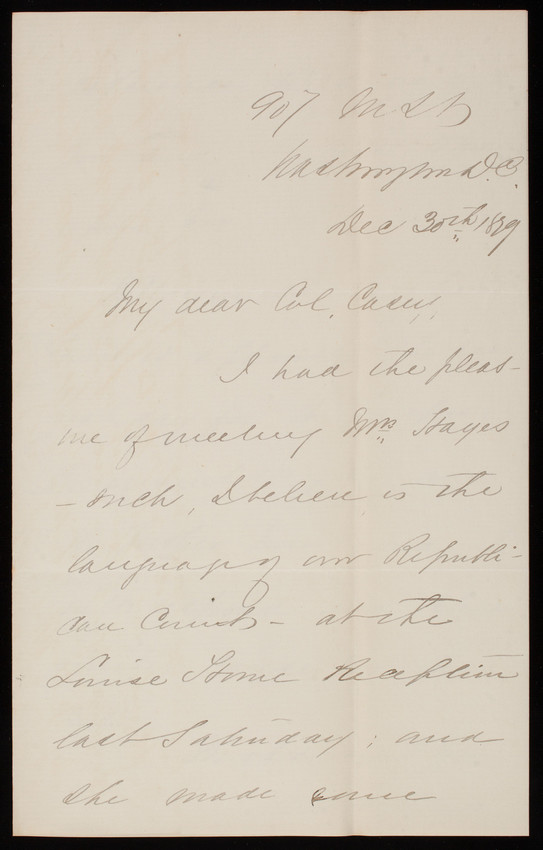 907 M St
Washington D.C.
Dec 30th 1879
My dear Col. Casey,
I had the pleas-
ure of meeting Mrs Hayes
– such, I believe, is the
language of our Republi-
can Courts – at the
Louise Home Reception
last Saturday; and
she made some